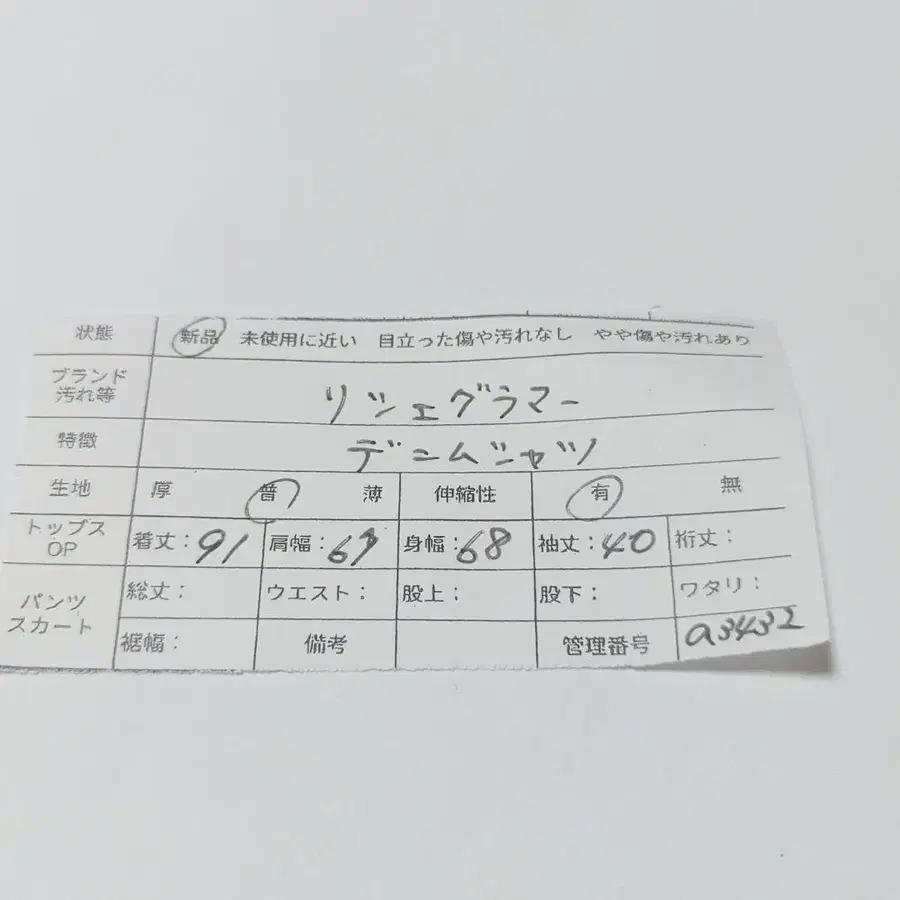 状態 新品 未使用に近い 目立った傷や汚れなし やや傷や汚れあり
ブランド
汚れ等 リシェグラマー
特徴 デニムシャツ
生地 厚 普 薄 伸縮性 有 無
トップス
OP 着丈:91 肩幅: 身幅:68 袖丈:40 裄丈:
パンツ
スカート 総丈: ウエスト: 股上: 股下: ワタリ:
裾幅: 備考 管理番号 a3432